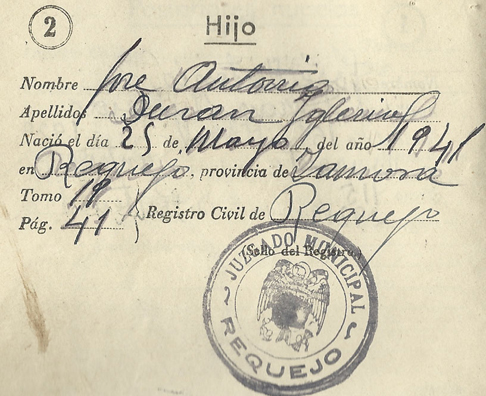 2
Hijo
Nombre Jose Antonio
Apellidos Duran Iglesias
Nació el día 25 de Mayo del año 1941
en Requejo provincia de Zamora
Tomo 19
Pág. 41 Registro Civil de Requejo
(Sello del Registro)
JUZGADO MUNICIPAL
REQUEJO